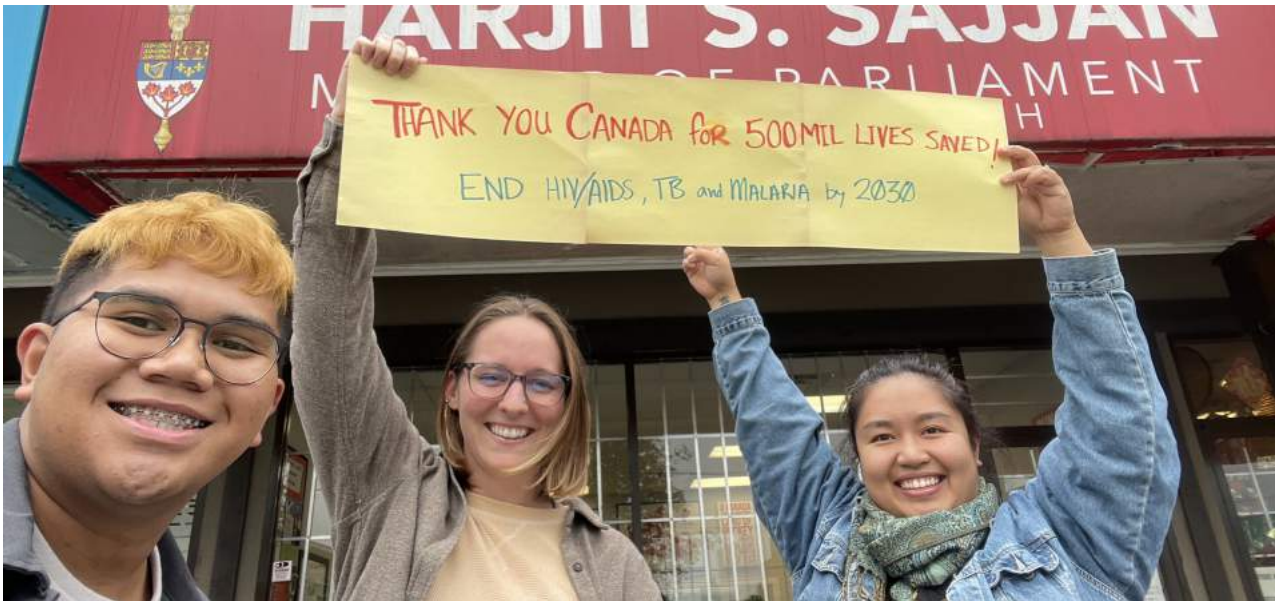 HARJIT S. SAJJAN
OF PARLIAMENT
H
THANK YOU CANADA for 500MIL LIVES SAVED!
END HIV/AIDS, TB and MALARIA by 2030